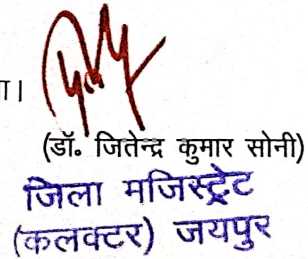 ा।
(डॉ० जितेन्द्र कुमार सोनी)
जिला मजिस्ट्रेट
(कलक्टर) जयपुर